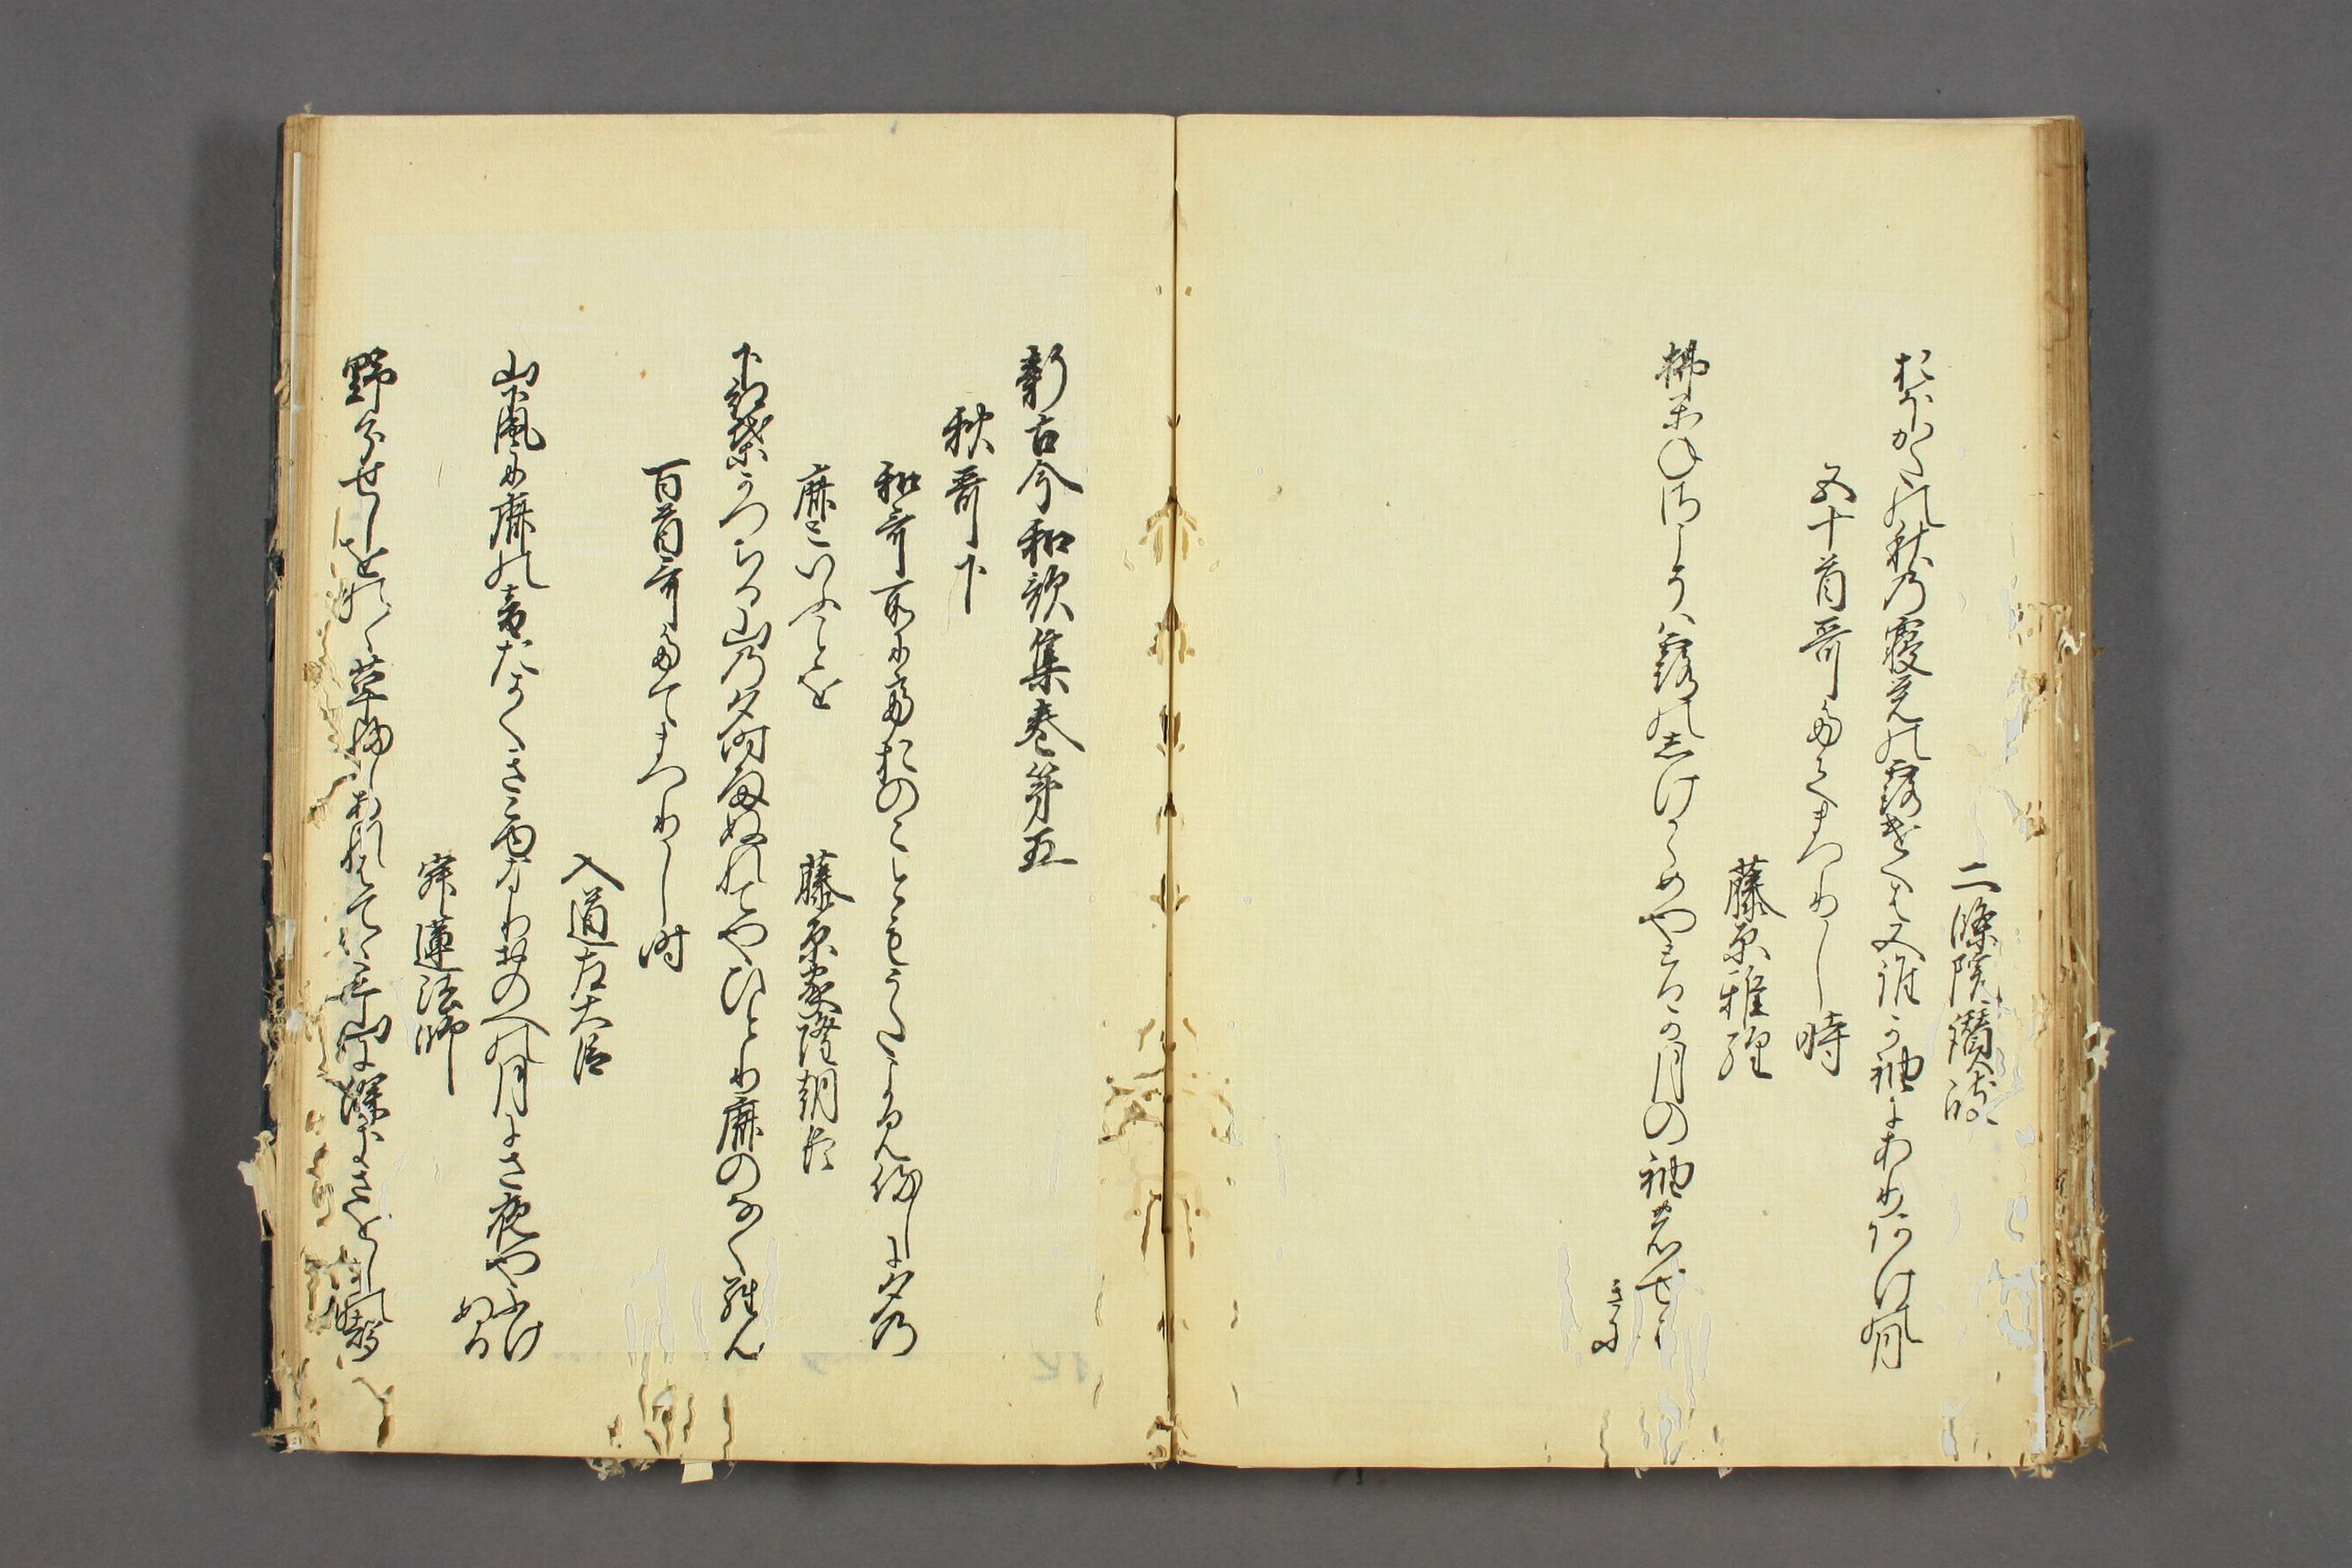 二條院讃岐
おほかたの秋の寝覚の露けくは又誰か袖にあり明の月
五十首哥たてまつりし時
藤原雅経
拂かねさこそは露のしけからめやとるか月の袖のせは
きに
新古今和歌集巻第五
秋哥下
和哥所にておのことも哥よみ侍しに夕の
鹿といふことを
藤原家隆朝臣
下紅葉かつちる山の夕時雨ぬれてやひとり鹿のなくらん
百首哥たてまつりし時
入道左大臣
山下風に鹿の音たかくきこゆなりおのへの月にさ夜やふけ
ぬる
寂蓮法師
野分せしをのゝ草ふしあれはてゝみ山に深きさをしかの聲